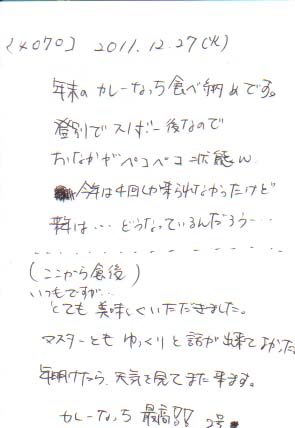 [4070] 2011.12.27(火)
年末の カレーなっち食べ納めです。
登別でスノボー後なので
おなかがペコペコ状態
今年は4回しか来られなかったけど
来年は…どうなっているんだろう…
(ここから食後)
いつもですが…
とても美味しくいただきました。
マスターとも ゆっくりと話が出来てよかった
年明けたら、天気を見てまた来ます。
カレーなっち 最高!! 2号